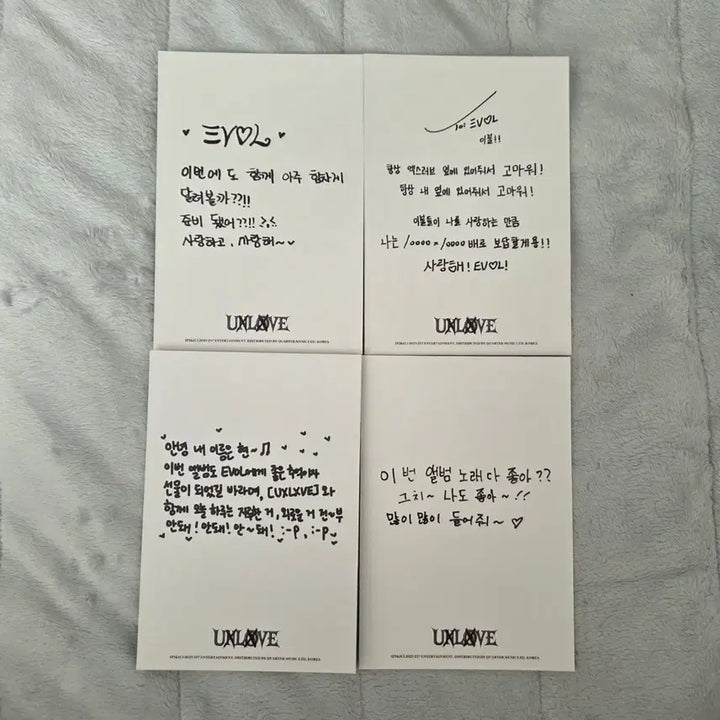 ♥ EV♡L ♥
이번에도 함께 아주 힘차게
달려볼까??!!
준비 됐어??!!
사랑하고, 사랑해~♥
UXLXVE
To: EV♡L
이블!!
항상 엑스러브 옆에 있어줘서 고마워!
항상 내 옆에 있어줘서 고마워!
이블들이 나를 사랑하는 만큼
나는 10000 × 10000 배로 보답할게용!!
사랑해! EV♡L!
UXLXVE
안녕 내 이름은 현~♫
이번 앨범도 EVOL에게 좋은 추억이자
선물이 되었길 바라며, [UXLXVE]와
함께 오늘 하루는 지루한 거, 외로운 거 전~부
안돼! 안돼! 안~돼! :-P, :-P
UXLXVE
이번 앨범 노래 다 좋아??
그치~ 나도 좋아~!!
많이 많이 들어줘~ ♡
UXLXVE